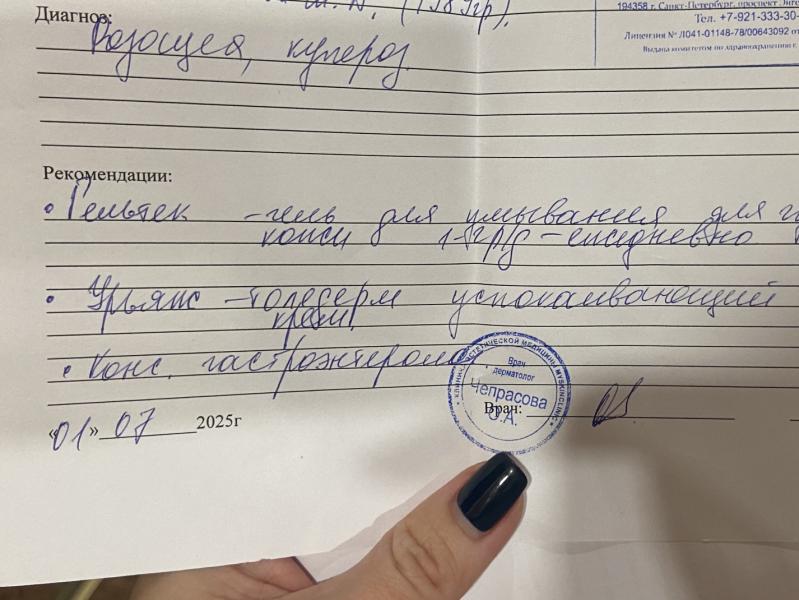 (1989гр).
194358 г. Санкт-Петербург, проспект
Тел. +7-921-333-30-
Лицензия № Л041-01148-78/00643092 от
Выдана комитетом по здравоохранению г.
Диагноз:
Розацея, купероз
Рекомендации:
• Гельтек - гель для умывания для
кожи 1-2р/д - ежедневно
• Урьяж - толедерм успокаивающий
крем.
• Конс. гастроэнтеролога
КЛИНИКА ЭСТЕТИЧЕСКОЙ МЕДИЦИНЫ MYSKINCLINIC
Врач
дерматолог
Чепрасова
О.А.
Врач:
«01» 07 2025г